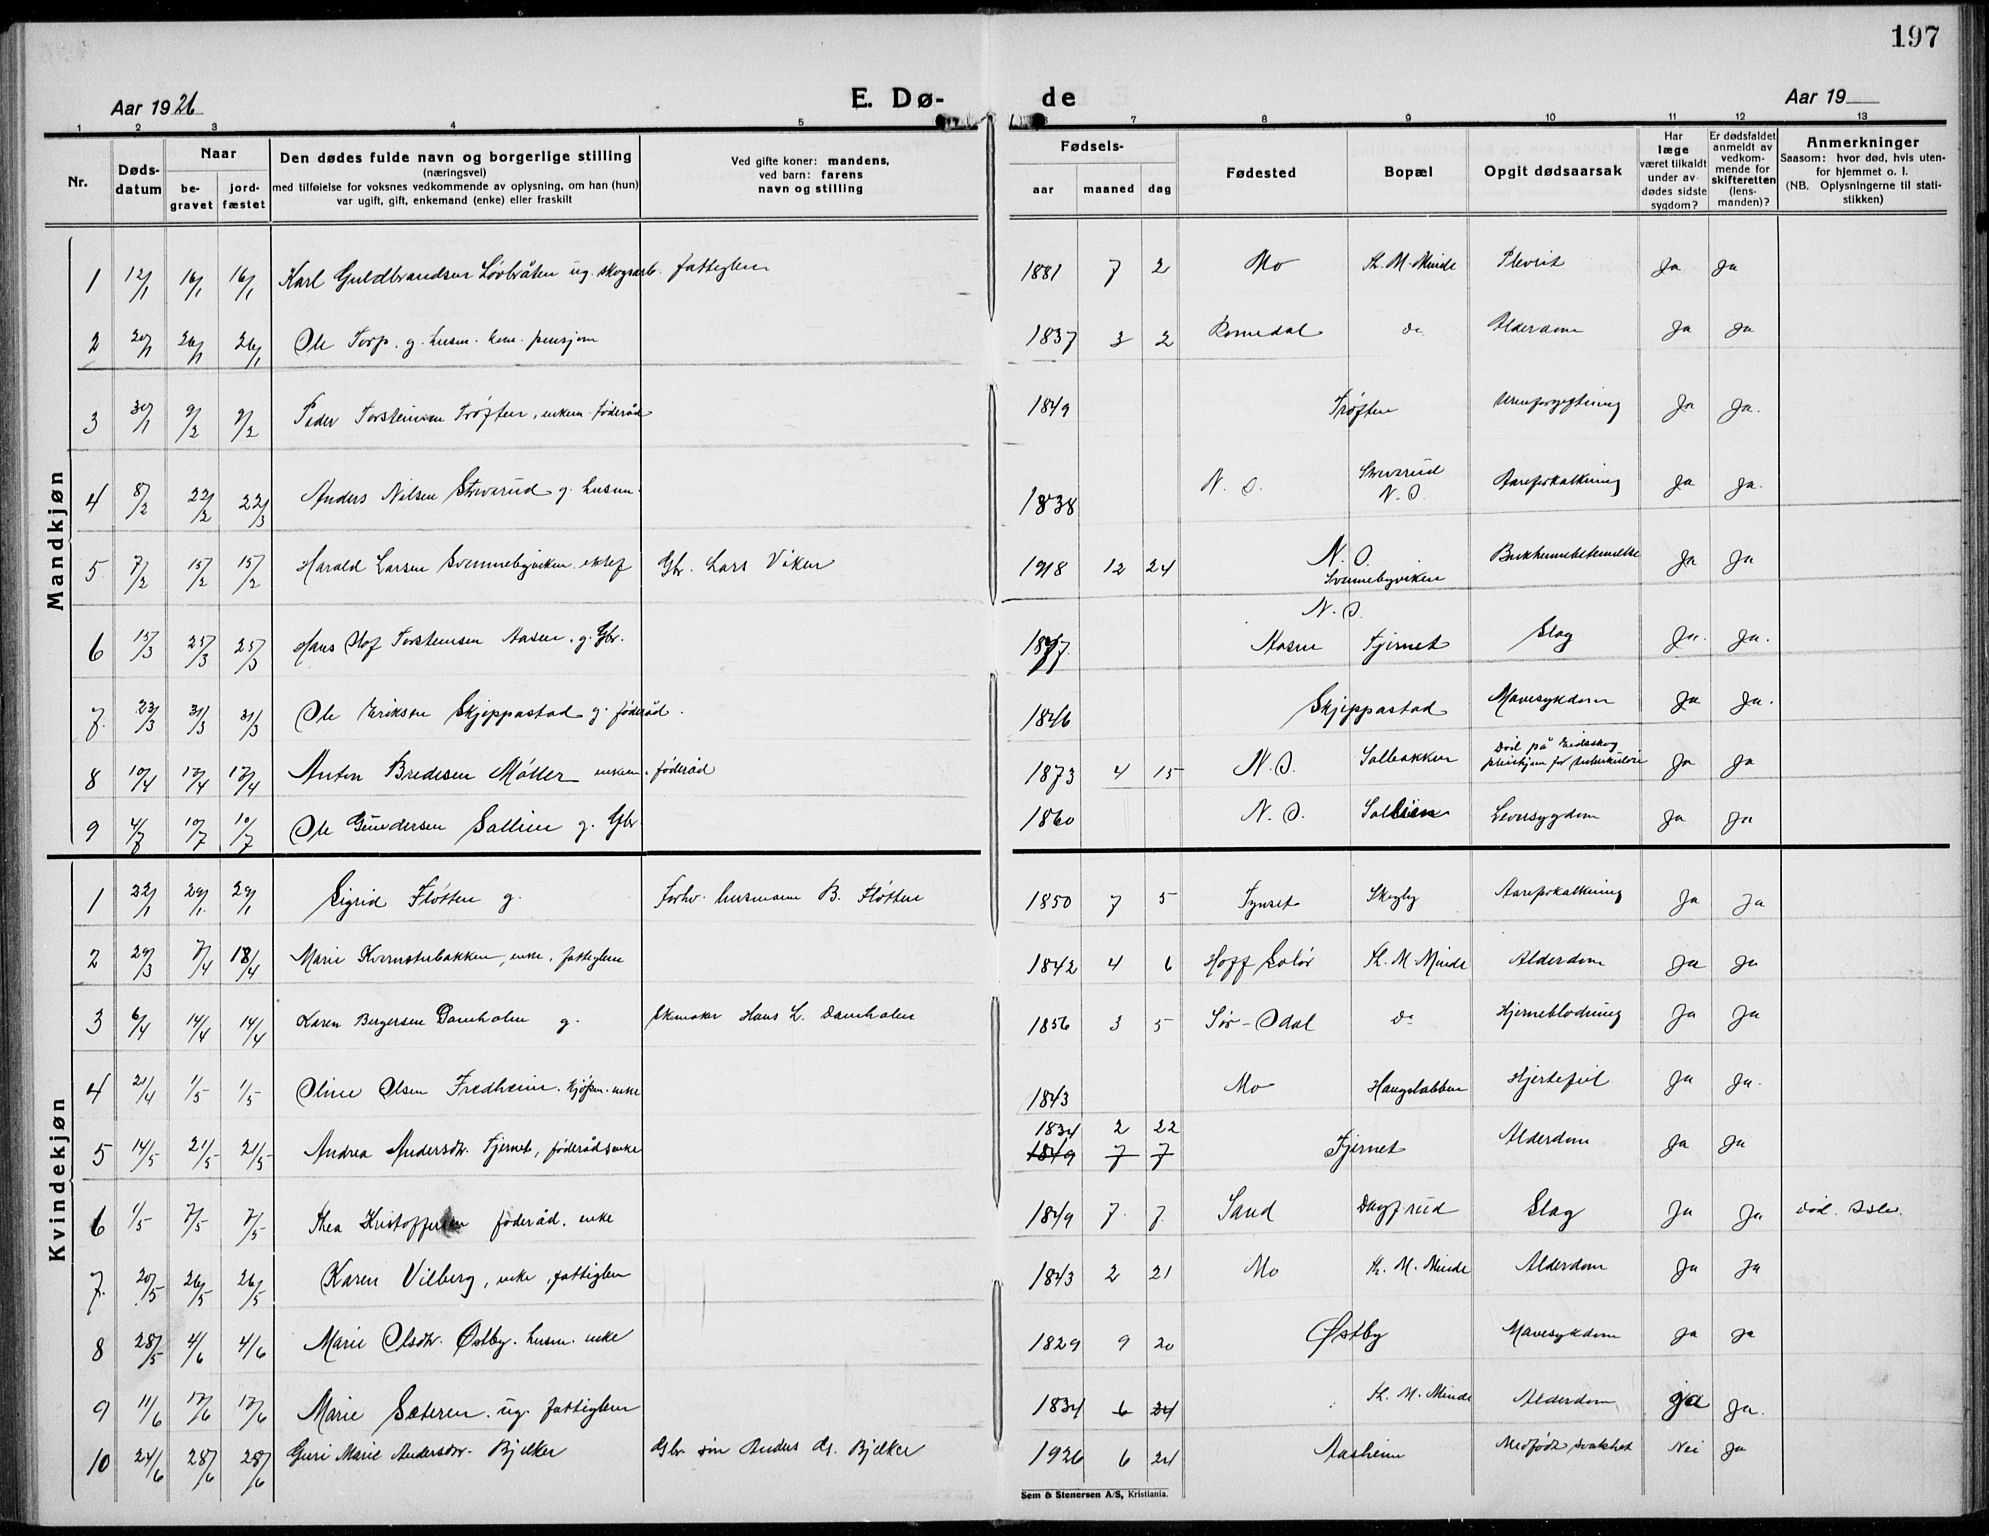 197
Aar 1926 E. Dø- de Aar 19
1 2 3 4 5 6 7 8 9 10 11 12 13
Nr. Dødsdatum Naar begravet jordfæstet
Den dødes fulde navn og borgerlige stilling
(næringsvei)
med tilføielse for voksnes vedkommende av oplysning, om han (hun)
var ugift, gift, enkemand (enke) eller fraskilt
Ved gifte koner: mandens,
ved barn: farens
navn og stilling
Fødsels- aar maaned dag
Fødested Bopæl Opgit dødsaarsak
Har læge været tilkaldt under avdødes sidste sygdom?
Er dødsfaldet anmeldt av vedkommende for skifteretten (lensmanden)?
Anmerkninger
Saasom: hvor død, hvis utenfor hjemmet o. l.
(NB. Oplysningerne til statistikken)
Mandkjøn
1 12/1 16/1 16/1 Karl Guldbrandsen Løvbråten ug. skogsarb. fattiglem 1881 7 2 Mo Th. M. Minde Plevrit Ja Ja
2 20/1 26/1 26/1 Ole Torp. g. husm. kom. pensjon 1837 3 2 Romedal do Alderdom Ja Ja
3 30/1 9/2 9/2 Peder Torstensen Trøften, enkem. føderåd 1849 Trøften Urinforgiftning Ja Ja.
4 8/2 22/2 22/3 Anders Nilsen g. husm. 1838 N. O. N. O. Aareforkalkning Ja Ja.
5 7/2 15/2 15/2 Harald Larsen Svennebyviken Gbr. Lars Viken 1918 12 24 N. O. Svennebyviken Bukhinnebetennelse Ja Ja
6 15/3 25/3 25/3 Hans Olof Torstensen Aasen. g. Gbr. N. O. Aasen Fjernet Slag Ja. Ja.
7. 23/3 31/3 31/3 Ole Eriksen Skjeppastad g. føderåd. 1846 Skjeppastad Mavesykdom Ja Ja.
8 10/4 17/4 17/4 Anton Bredesen Møller enkem. føderåd 1873 4 15 N. O. Solbakken Død på Eidskog pleiehjem for tuberkuløse Ja Ja
9 4/7 10/7 10/7 Ole Gundersen Sollien g. Gbr. 1860 N. O. Sollien Leversygdom Ja Ja
Kvindekjøn
1 22/1 29/1. 29/1 Sigrid Fløtten g. Forhv. husmann B. Fløtten 1850 7 5 Tynset Skogby Aareforkalkning Ja Ja
2 29/3 7/4 18/4 Marie Kvernstubakken, enke, fattiglem 1842 4 6 Hoff Solør Th. M. Minde Alderdom Ja Ja
3 6/4 14/4 14/4 Karen Bergersen Damholen g. Skmaker Hans L. Damholen 1856 3 5 Sør-Odal do Hjerneblødning Ja Ja
4 21/4 1/5 1/5 Oline Olsen Fredheim. kjøpm. enke 1843 Mo Haugslabben Hjertefeil Ja Ja.
5 14/5 21/5 21/5 Andrea Andersdtr. Fjernet, føderådsenke 1834 2 22 1849 7 7 Fjernet Alderdom Ja Ja
6 1/5 7/5 7/5 Thea Kristoffersen føderåd. enke 1849 7. 7. Sand Dagfrud Slag Ja Ja død. Oslo.
7. 20/5 26/5 26/5 Karen Vilberg, enke, fattiglem 1843 2 21 Mo Th. M. Minde Alderdom Ja Ja
8 28/5 4/6 4/6 Marie Olsdtr. Østby. husm. enke 1829 9 20 Østby Mavesykdom Ja Ja
9 11/6 17/6 17/6 Marie Sæteren. ug. fattiglem 1834 6 24 Th. M. Minde Alderdom ja Ja.
10 24/6 28/6 28/6 Guri Marie Andersdtr. Bjelker Gbr. søn Anders A. Bjelker 1926 6 24 Aasheim Medfødt svakhet Nei Ja
Sem & Stenersen A/S, Kristiania.